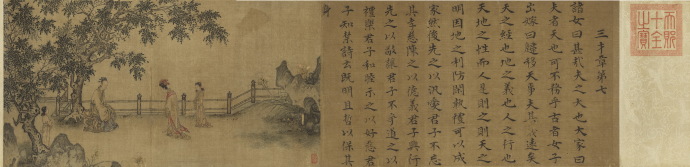 三才章第七
諸女曰甚哉夫之大也大家曰
夫者天也可不務乎古者女子
出嫁曰歸移天事夫其義遠矣
天之經也地之義也人之行也
天地之性而人是則之則天之
明因地之利防閑執禮可以成
家然後先之以汎愛君子不忘
其孝慈陳之以德義君子興行
先之以敬讓君子不爭導之以
禮樂君子和睦示之以好惡君
子知禁詩云既明且哲以保其
身